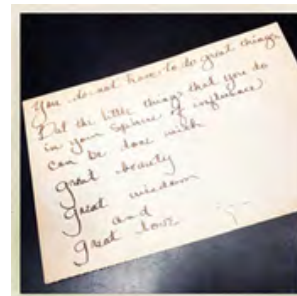 You do not have to do great things
But the little things that you do
in your sphere of influence
can be done with
great beauty
great wisdom
and
great love